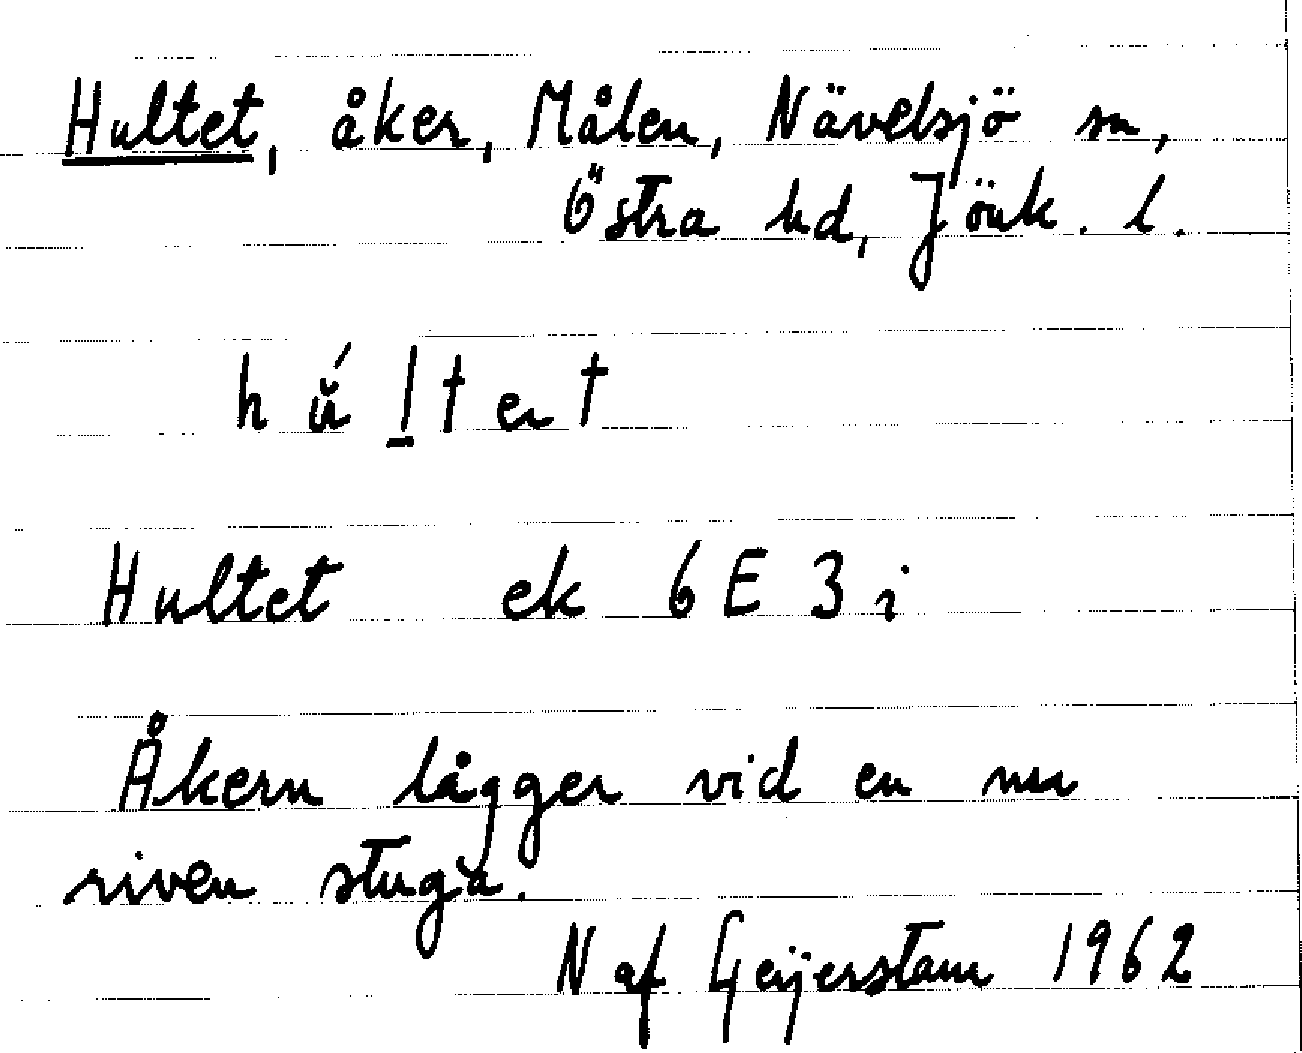 Hultet, åker, Målen, Nävelsjö sn,
Östra hd, Jönk. l.
h ŭ́ l̲ t er t
Hultet ek 6 E 3 i
Åkern lågger vid en nu
riven stuga.
N af Geijerstam 1962